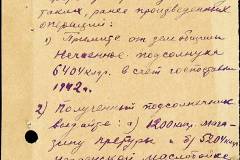 таких, ранее произведенных
операций:
1) Примите от замобщины
Нечаенные подсолнуха
6404 клгр. в счет госпоставки
1942 г.
2) Полученный подсолнечник
выдайте: а) 1200 клгр. мага-
зину префуры и б) 5204 клгр.
маслобойке